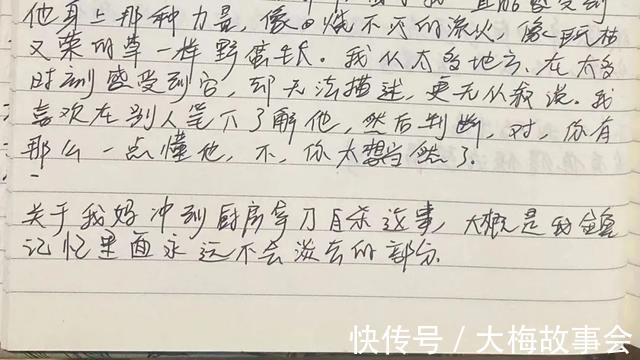 他身上那种力量,像日烧不灭的流火,像一玩枯
又荣的草一样野蛮生长。我从太多地方、在太多
时刻感受到它,却无法描述,更无从叙说。我
喜欢在别人笔下了解他,然后判断,对,你有
那么一点懂他,不,你太想当然了。
关于我妈冲到厨房拿刀自杀这事,大概是我
记忆里面永远不会淡去的部分.
快传号/大梅故事会